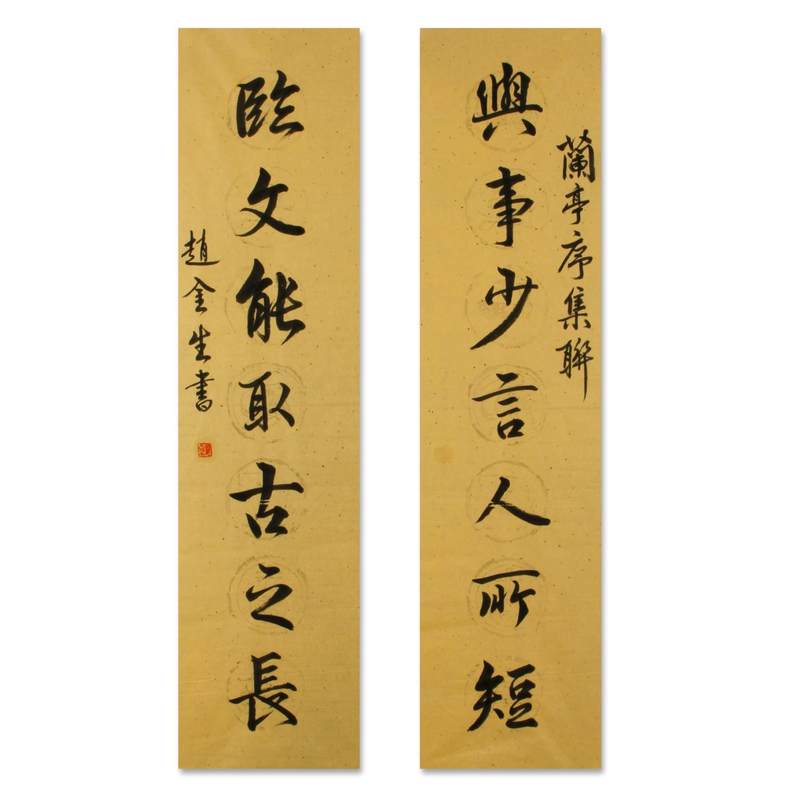 蘭亭序集聯
與事少言人所短
臨文能取古之長
趙金生書